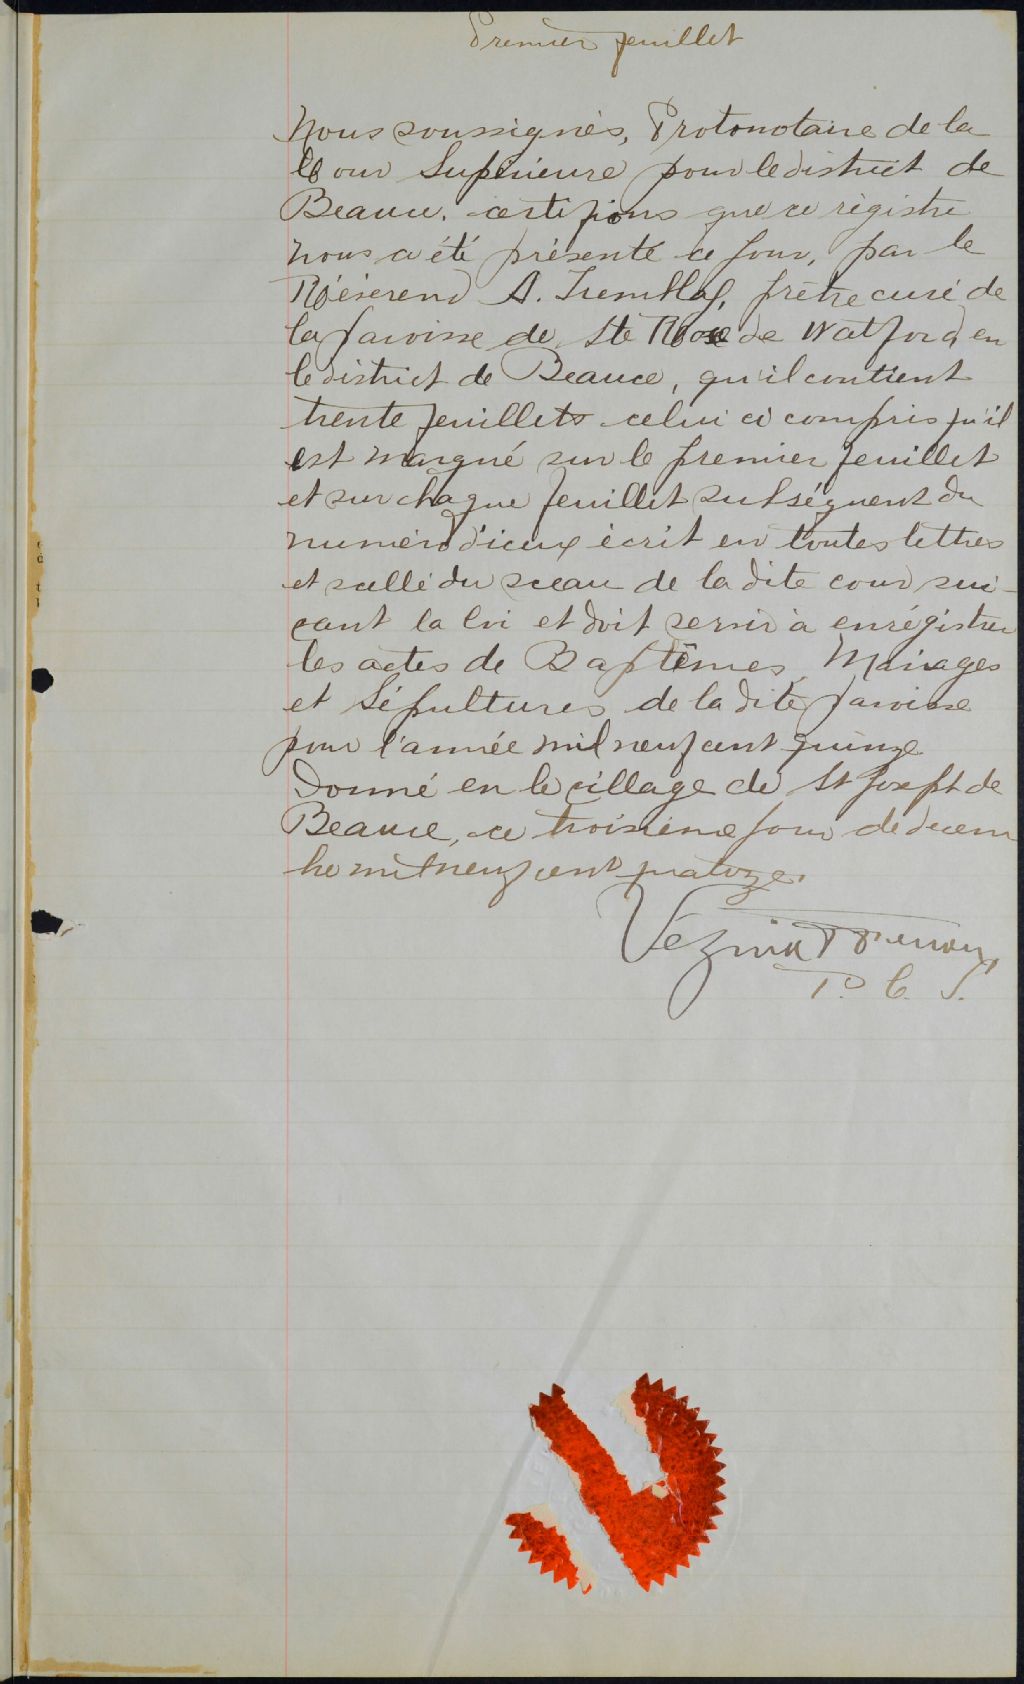 Premier feuillet
Nous soussignés, Protonotaire de la
Cour Supérieure pour le district de
Beauce, certifions que ce régistre
nous a été présenté ce jour, par le
Révérend A. Tremblay, prêtre curé de
la paroisse de Ste Rose de Watford en
le district de Beauce, qu'il contient
trente feuillets celui ci compris qu'il
est marqué sur le premier feuillet
et sur chaque feuillet subséquent du
numéro d'iceux écrit en toutes lettres
et scellé du sceau de la dite cour sui-
vant la loi et doit servir à enrégistrer
les actes de Baptêmes, Mariages
et Sépultures de la dite paroisse
pour l'année mil neuf cent quinze
Donné en le village de St Joseph de
Beauce, ce troisième jour de decem
bre mil neuf cent quatorze.
Vézina
P. C. S.